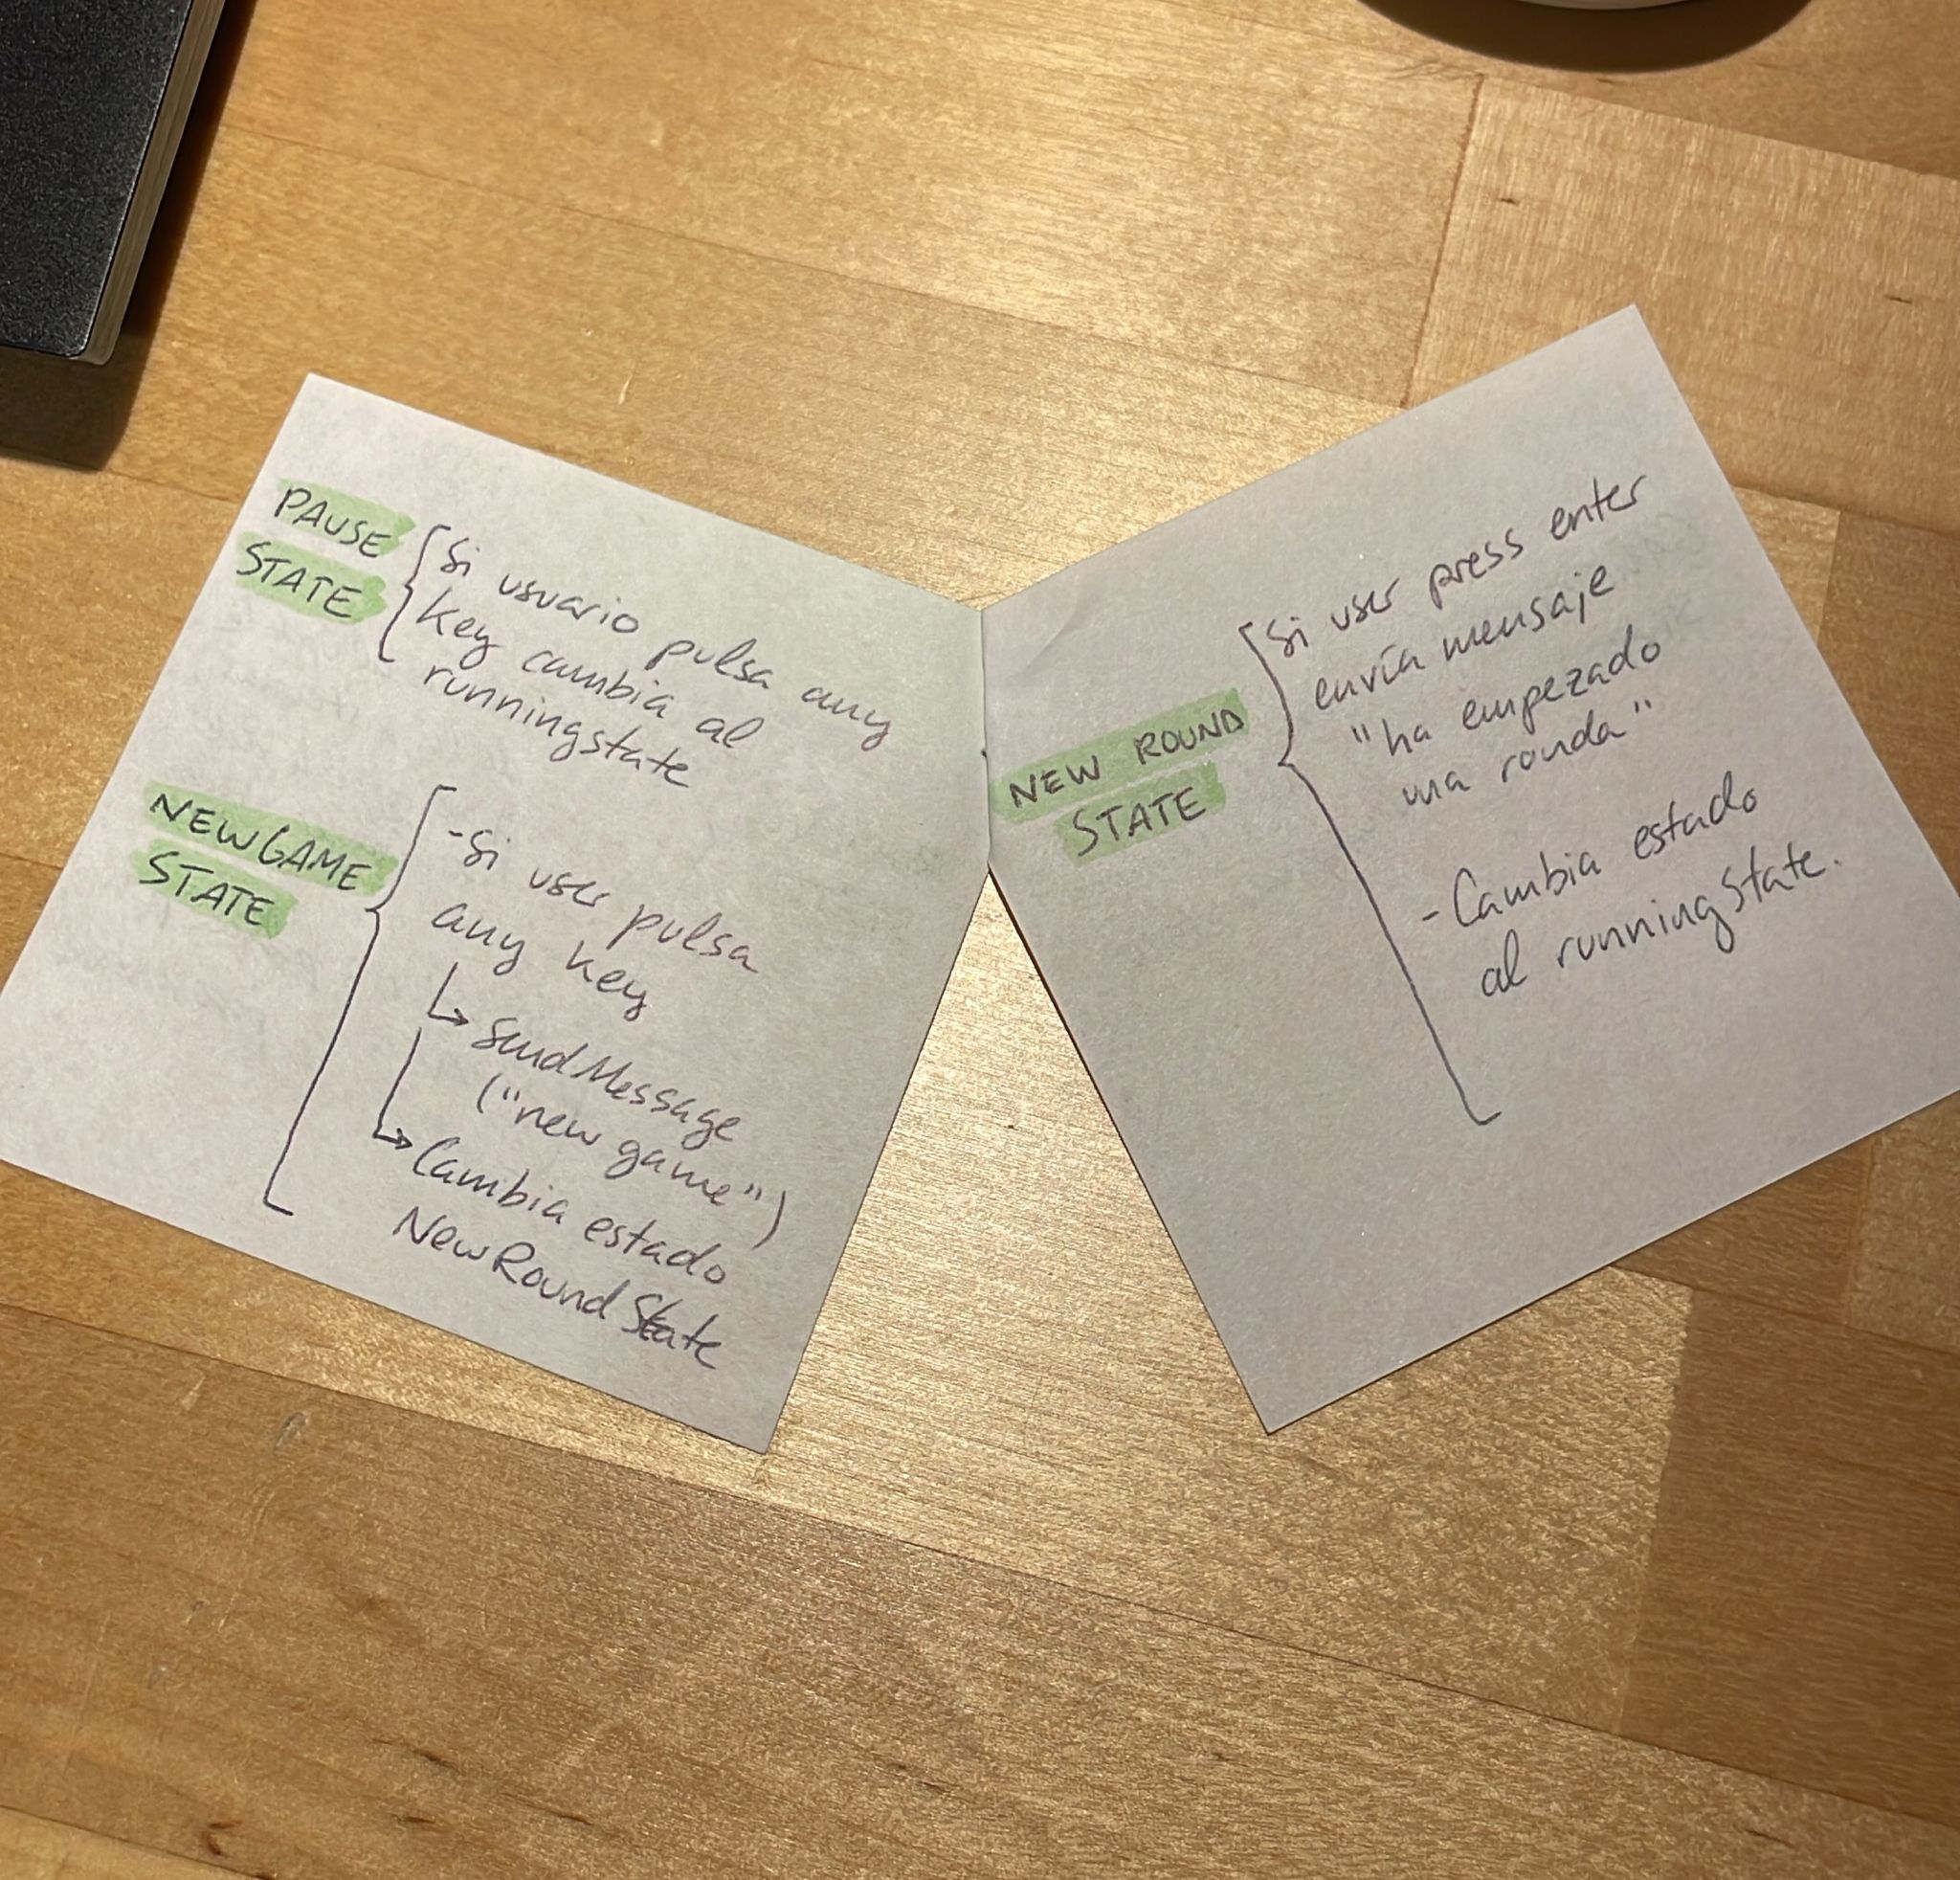 PAUSE
STATE
Si usuario pulsa any
key cambia al
runningstate
NEWGAME
STATE
-Si user pulsa
any key
↳ SendMessage
("new game")
↳ Cambia estado
NewRoundState
NEW ROUND
STATE
Si user press enter
envía mensaje
"ha empezado
una ronda"
-Cambia estado
al runningState.